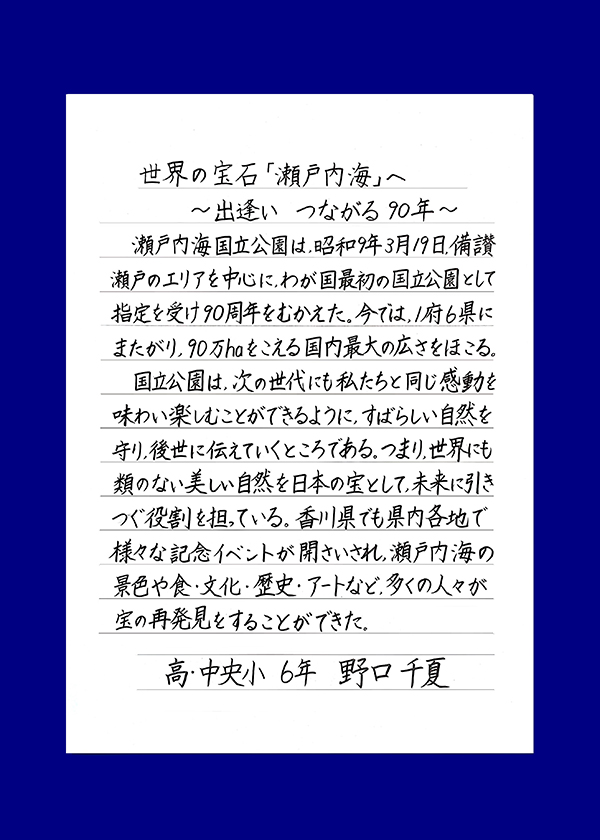 世界の宝石「瀬戸内海」へ
～出逢い つながる90年～
瀬戸内海国立公園は,昭和9年3月19日,備讃
瀬戸のエリアを中心に,わが国最初の国立公園として
指定を受け90周年をむかえた。今では,1府6県に
またがり,90万haをこえる国内最大の広さをほこる。
国立公園は,次の世代にも私たちと同じ感動を
味わい楽しむことができるように,すばらしい自然を
守り,後世に伝えていくところである。つまり,世界にも
類のない美しい自然を日本の宝として,未来に引き
つぐ役割を担っている。香川県でも県内各地で
様々な記念イベントが開さいされ,瀬戸内海の
景色や食・文化・歴史・アートなど,多くの人々が
宝の再発見をすることができた。
高・中央小 6年 野口千夏